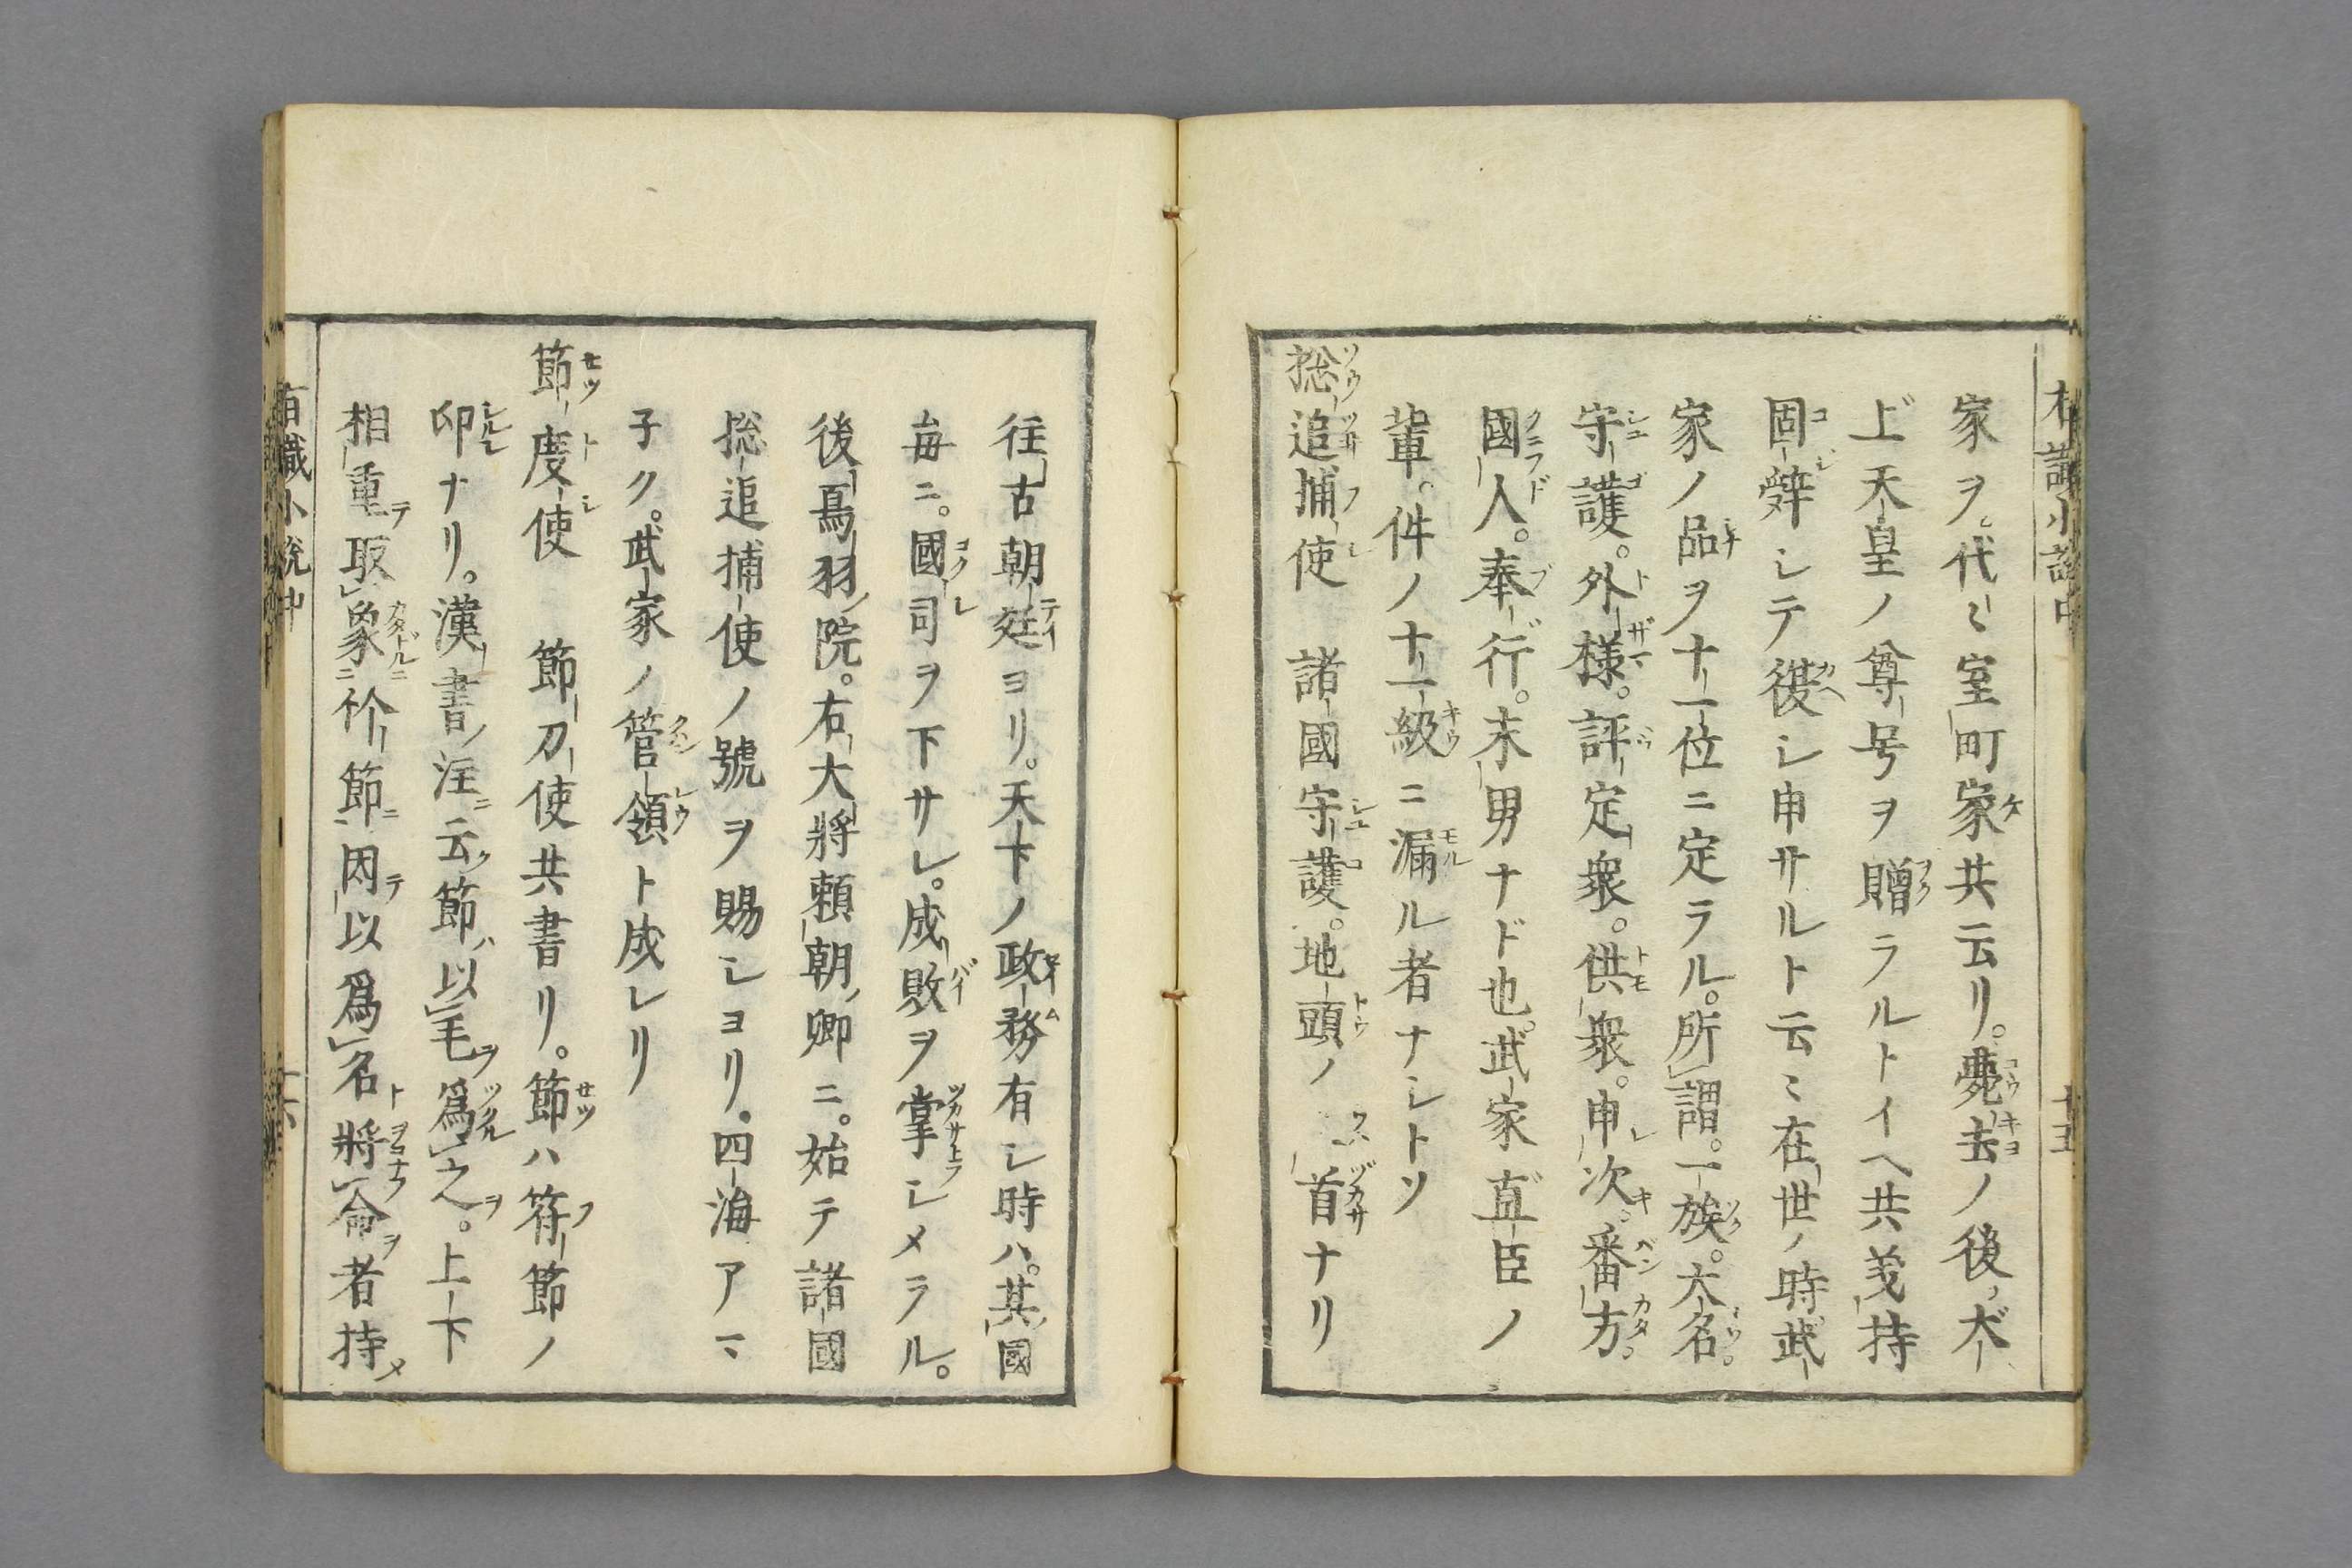 家ヲ。代〻室町家共云リ。薨去ノ後。太
上天皇ノ尊号ヲ贈ラルトイヘ共義持
固辭シテ復シ申サルト云〻在世ノ時武
家ノ品ヲ十一位ニ定ラル。所謂。一族。大名。
守護。外様。評定衆。供衆。申次。番方。
國人。奉行。末男ナド也。武家直臣ノ
輩。件ノ十一級ニ漏ル者ナシトソ
捴追捕使　諸國守護。地頭ノ首ナリ
往古朝廷ヨリ。天下ノ政務有シ時ハ。其國
毎ニ。國司ヲ下サレ。成敗ヲ掌シメラル。
後鳥羽ノ院。右大將頼朝ノ卿ニ。始テ諸國
捴追捕使ノ號ヲ賜シヨリ。四海アマ
子ク。武家ノ管領ト成レリ
節度使　節刀使共書リ。節ハ符節ノ
印ナリ。漢書ノ注ニ云ク節ハ以毛ヲ爲之ヲ。上下
相重テ取象ニ竹節ニ因テ以爲名ト將命ヲ者持メ
有職小説中